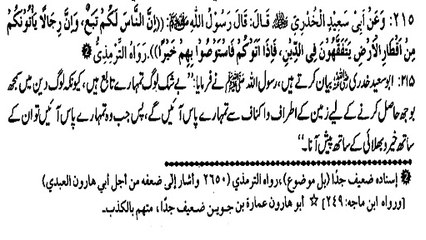 ٢١٥: وَعَنْ أَبِي سَعِيدِ الْخُدْرِيِّ ﷺ قَالَ: قَالَ رَسُولُ اللَّهِ ﷺ: ((إِنَّ النَّاسَ لَكُمْ تَبَعٌ، وَإِنَّ رِجَالًا يَأْتُونَكُمْ
مِنْ أَقْطَارِ الْأَرْضِ يَتَفَقَّهُونَ فِي الدِّينِ، فَإِذَا أَتَوْكُمْ فَاسْتَوْصُوا بِهِمْ خَيْرًا)). رَوَاهُ التِّرْمِذِيُّ
۲۱۵: ابوسعید خدری بیان کرتے ہیں، رسول اللہ ﷺ نے فرمایا: ’’بے شک لوگ تمہارے تابع ہیں، کیونکہ لوگ دین میں سمجھ
بوجھ حاصل کرنے کے لیے زمین کے اطراف واکناف سے تمہارے پاس آئیں گے، پس جب وہ تمہارے پاس آئیں تو ان کے
ساتھ خیر وبھلائی کے ساتھ پیش آنا۔‘‘
إسناده ضعيف جدًا (بل موضوع)، رواه الترمذي (٢٦٥٠ وأشار إلى ضعفه من أجل أبي هارون العبدي)
[ورواه ابن ماجه: ٢٤٩] ☆ أبو هارون عمارة بن جوين ضعيف جدًا، متهم بالكذب۔